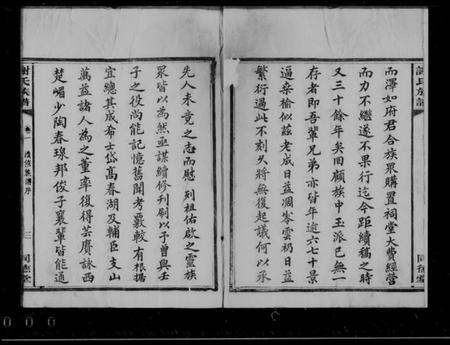 而澤如府君合族眾購置祠堂大費經營
而力不繼遂不果行迄今距續稿之時
又三十餘年矣回顧族中玉派已無一
存者即吾輩兄弟亦皆年逾六七十景
逼桑榆似茲老成日益凋零雲礽日益
繁衍過此不刻久將無復起議何以承
先人未竟之志而慰
列祖佑啟之靈族
眾皆以為然亟謀續修刊刷以予曾與壬
子之役尚能記憶舊聞考覈較有根據
宜總其成希士岱高春湖及輔臣支山
萬益諸人為之董率復得芸賡詠西
楚嵋少陶春琅邦俊子襄輩皆能通
謝氏族譜
卷一
續修族譜序
三